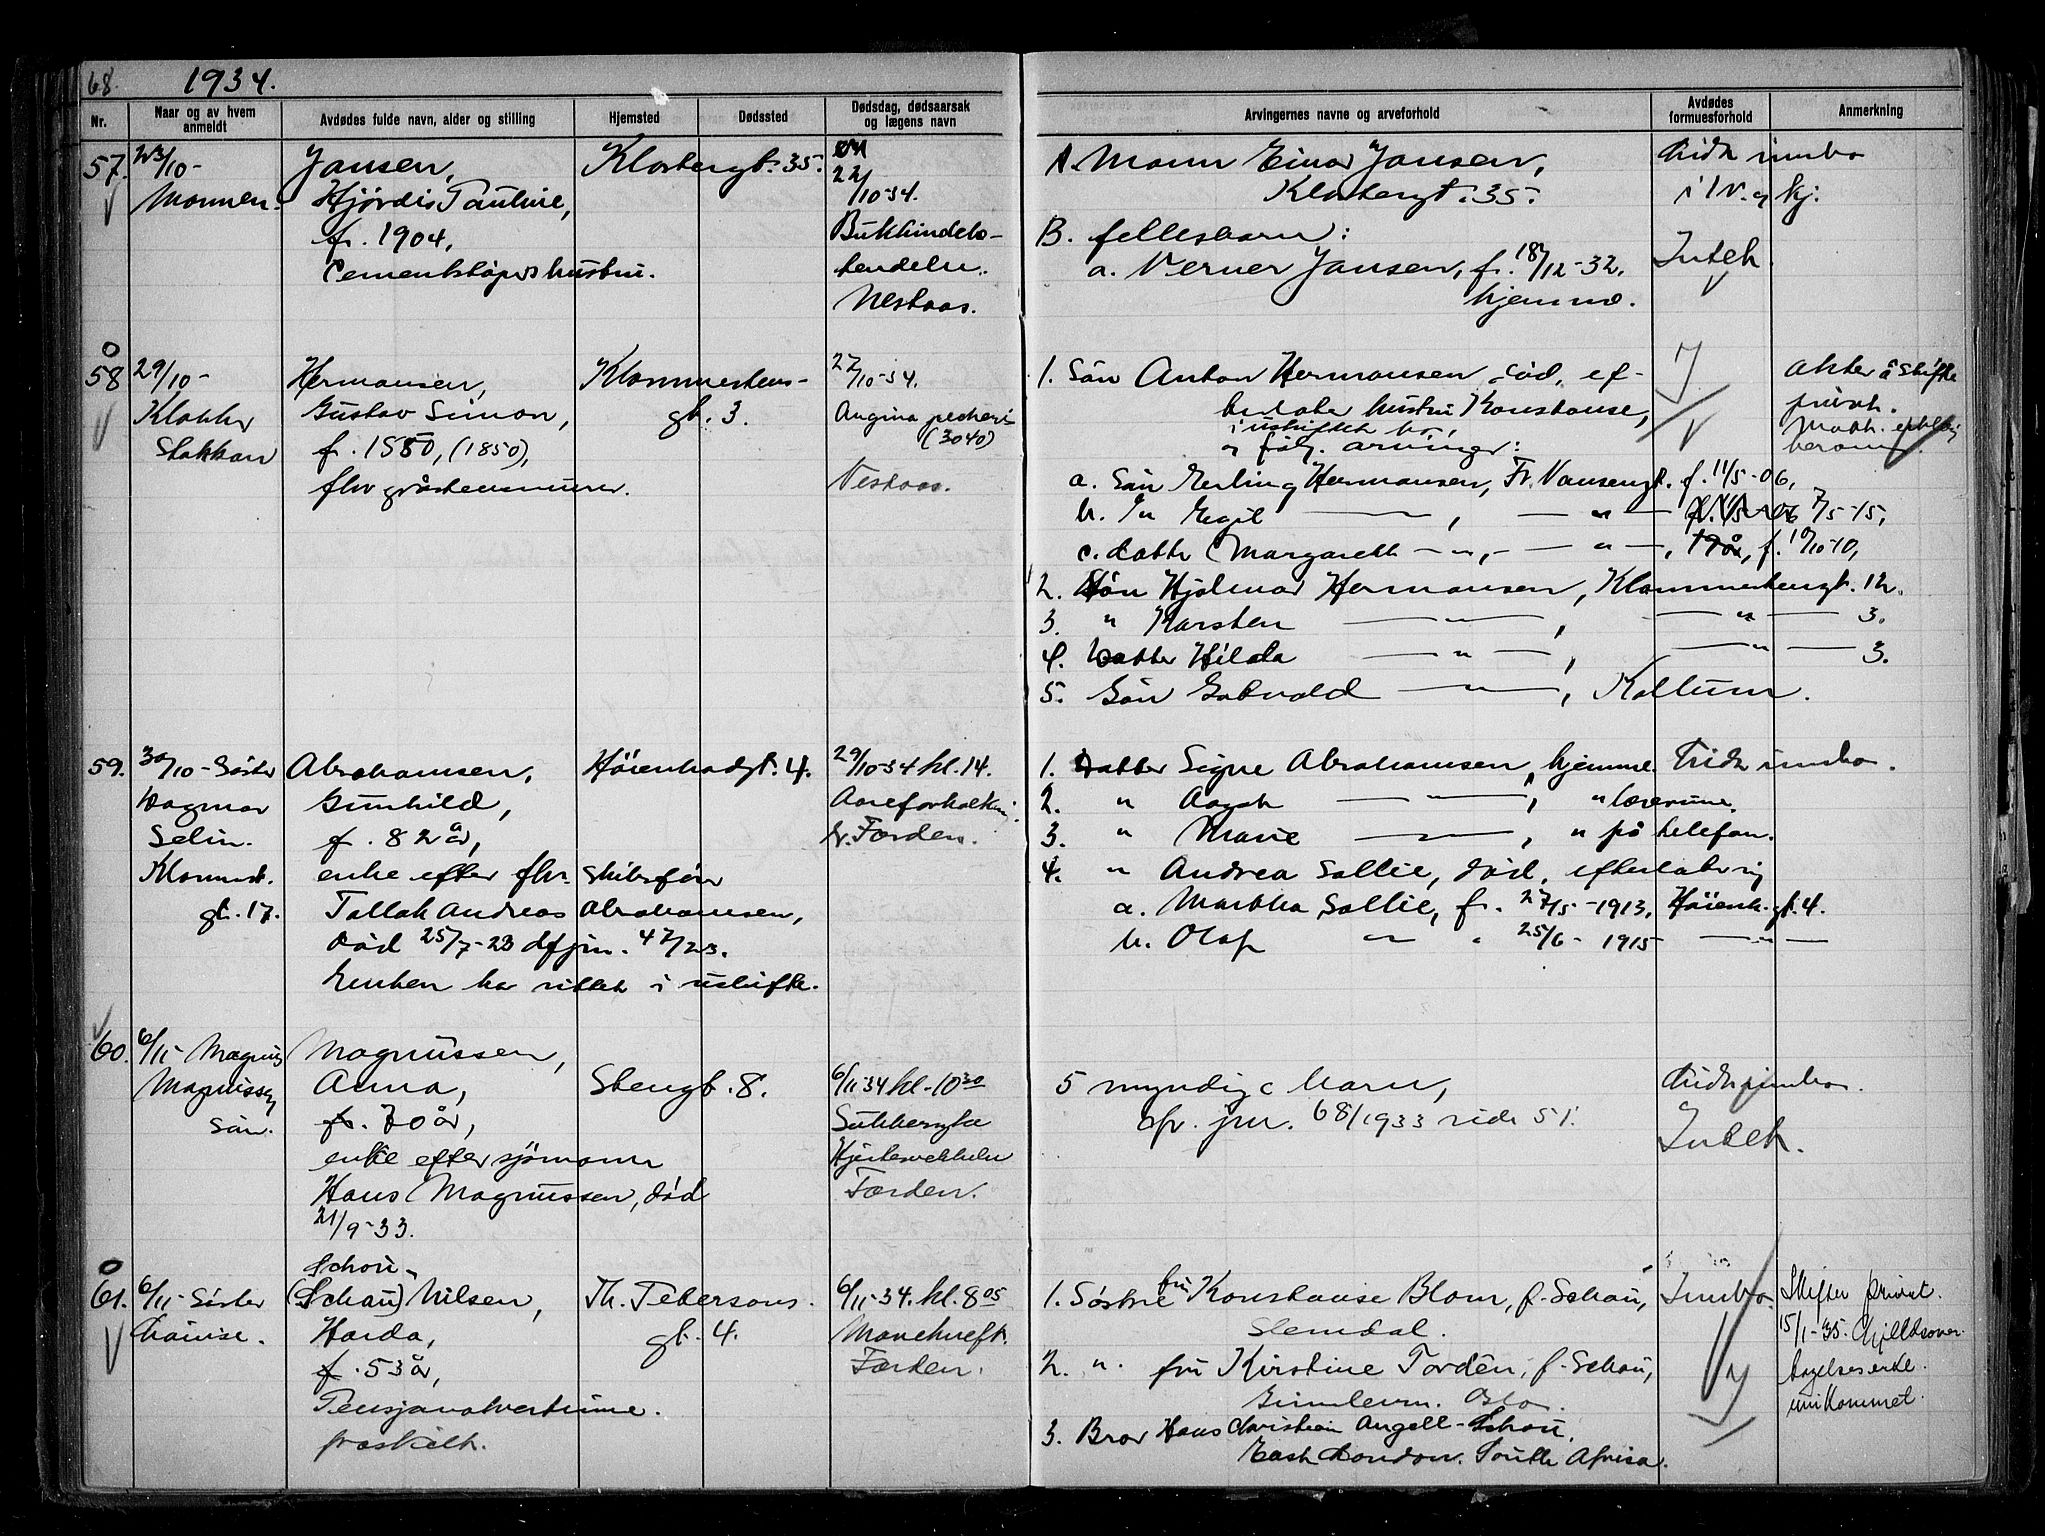 68. 1934.
Nr.
Naar og av hvem anmeldt
Avdødes fulde navn, alder og stilling
Hjemsted
Dødssted
Dødsdag, dødsaarsak og lægens navn
Arvingernes navne og arveforhold
Avdødes formuesforhold
Anmerkning
57. 23/10-
Mannen.
Jansen,
Hjørdis Pauline,
f. 1904,
Cementstøpers hustru.
Klostergt. 35.
22/10-34.
Nestaas.
A. Mann Einar Jansen,
Klostergt. 35.
B. fellesbarn:
a. Verner Jansen, f. 18/12-32.
hjemme.
58 29/10-
Klokker
Stakkan
Hermansen,
Gustav Simon,
f. 1850, (1850),
fhv gråstensmurer.
Klommestens-
gt. 3.
27/10-34.
Angina pectoris
(3040)
Nestaas.
1. Sön Anton Hermansen, död, ef-
terlater hustru Konstanse,
i uskiftet bo,
og følg. arvinger:
a. Sön Erling Hermansen, Fr. Nansengt. f. 11/5-06,
b. " Egil — " —, — " — 7/5-15,
c. datter Margareth — " —, — " —, 19 år, f. 10/10-10,
2. Sön Hjalmar Hermansen, Klommestengt. 12.
3. " Karsten — " —, — " — 3.
4. Datter Hilda — " —, — " — 3.
5. Sön — " —, Kollum.
akter å skifte
privat.
59. 30/10-Søster
Dagmar
Selin.
Klommest.
gt. 17.
Abrahamsen,
Gunhild,
f. 82 år,
enke efter fhv. skibsfører
Tallak Andreas Abrahamsen,
död 25/7-23 dfjrn. 47/23.
Enken har sittet i uskifte.
Höienhadgt. 4.
29/10-34 kl. 14.
Aareforkalkning.
Dr. Förden.
1. Datter Signe Abrahamsen, hjemme. Intet i innbo.
2. " Aagot — " —, " lærerinne.
3. " Marie — " —, " på telefon.
4. " Andrea Sollie, död, efterlater sig
a. Martha Sollie, f. 27/5-1913, Höienh.gt. 4.
b. Olaf " " 25/6-1915 — " —
60. 6/11- Magnus
Magnussen
Sön.
Magnussen,
Anna,
f. 70 år,
enke efter sjömann
Hans Magnussen, död
21/9-33.
Stengt. 8.
6/11-34 kl. 10 30
Sukkersyke
Hjertesvekkelse
Förden.
5 myndige barn,
cfr. jrn. 68/1933 side 51.
Intet.
61. 6/11-Søster
Louise.
Schou-
(Schou) Nilsen,
Harda,
f. 53 år,
Pensjonatvertinne.
fraskilt.
Th. Petersons.
gt. 4.
6/11-34. kl. 8 05
Mavekreft.
Förden.
1. Søstre fru Konstanse Blom, f. Schou,
Slemdal.
2. " fru Kirstine Torden, f. Schou,
Oslo.
3. Bror Hans Christian Angell-Schou,
East London. South Africa.
Innbo.
Skifter privat.
15/1-35. Gjeldsover-
tagelseserkl.
innkommet.